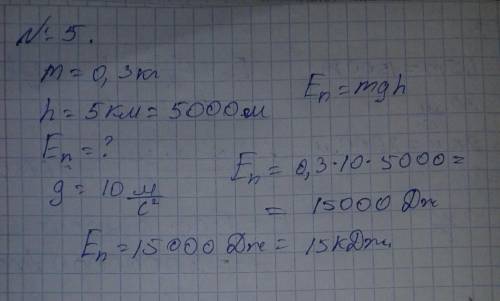 № 5.
m = 0,3 кг
h = 5 км = 5000 м
Eп = ?
g = 10 м/с²
Eп = mgh
Eп = 0,3·10·5000 =
= 15000 Дж
Eп = 15000 Дж = 15 кДж.